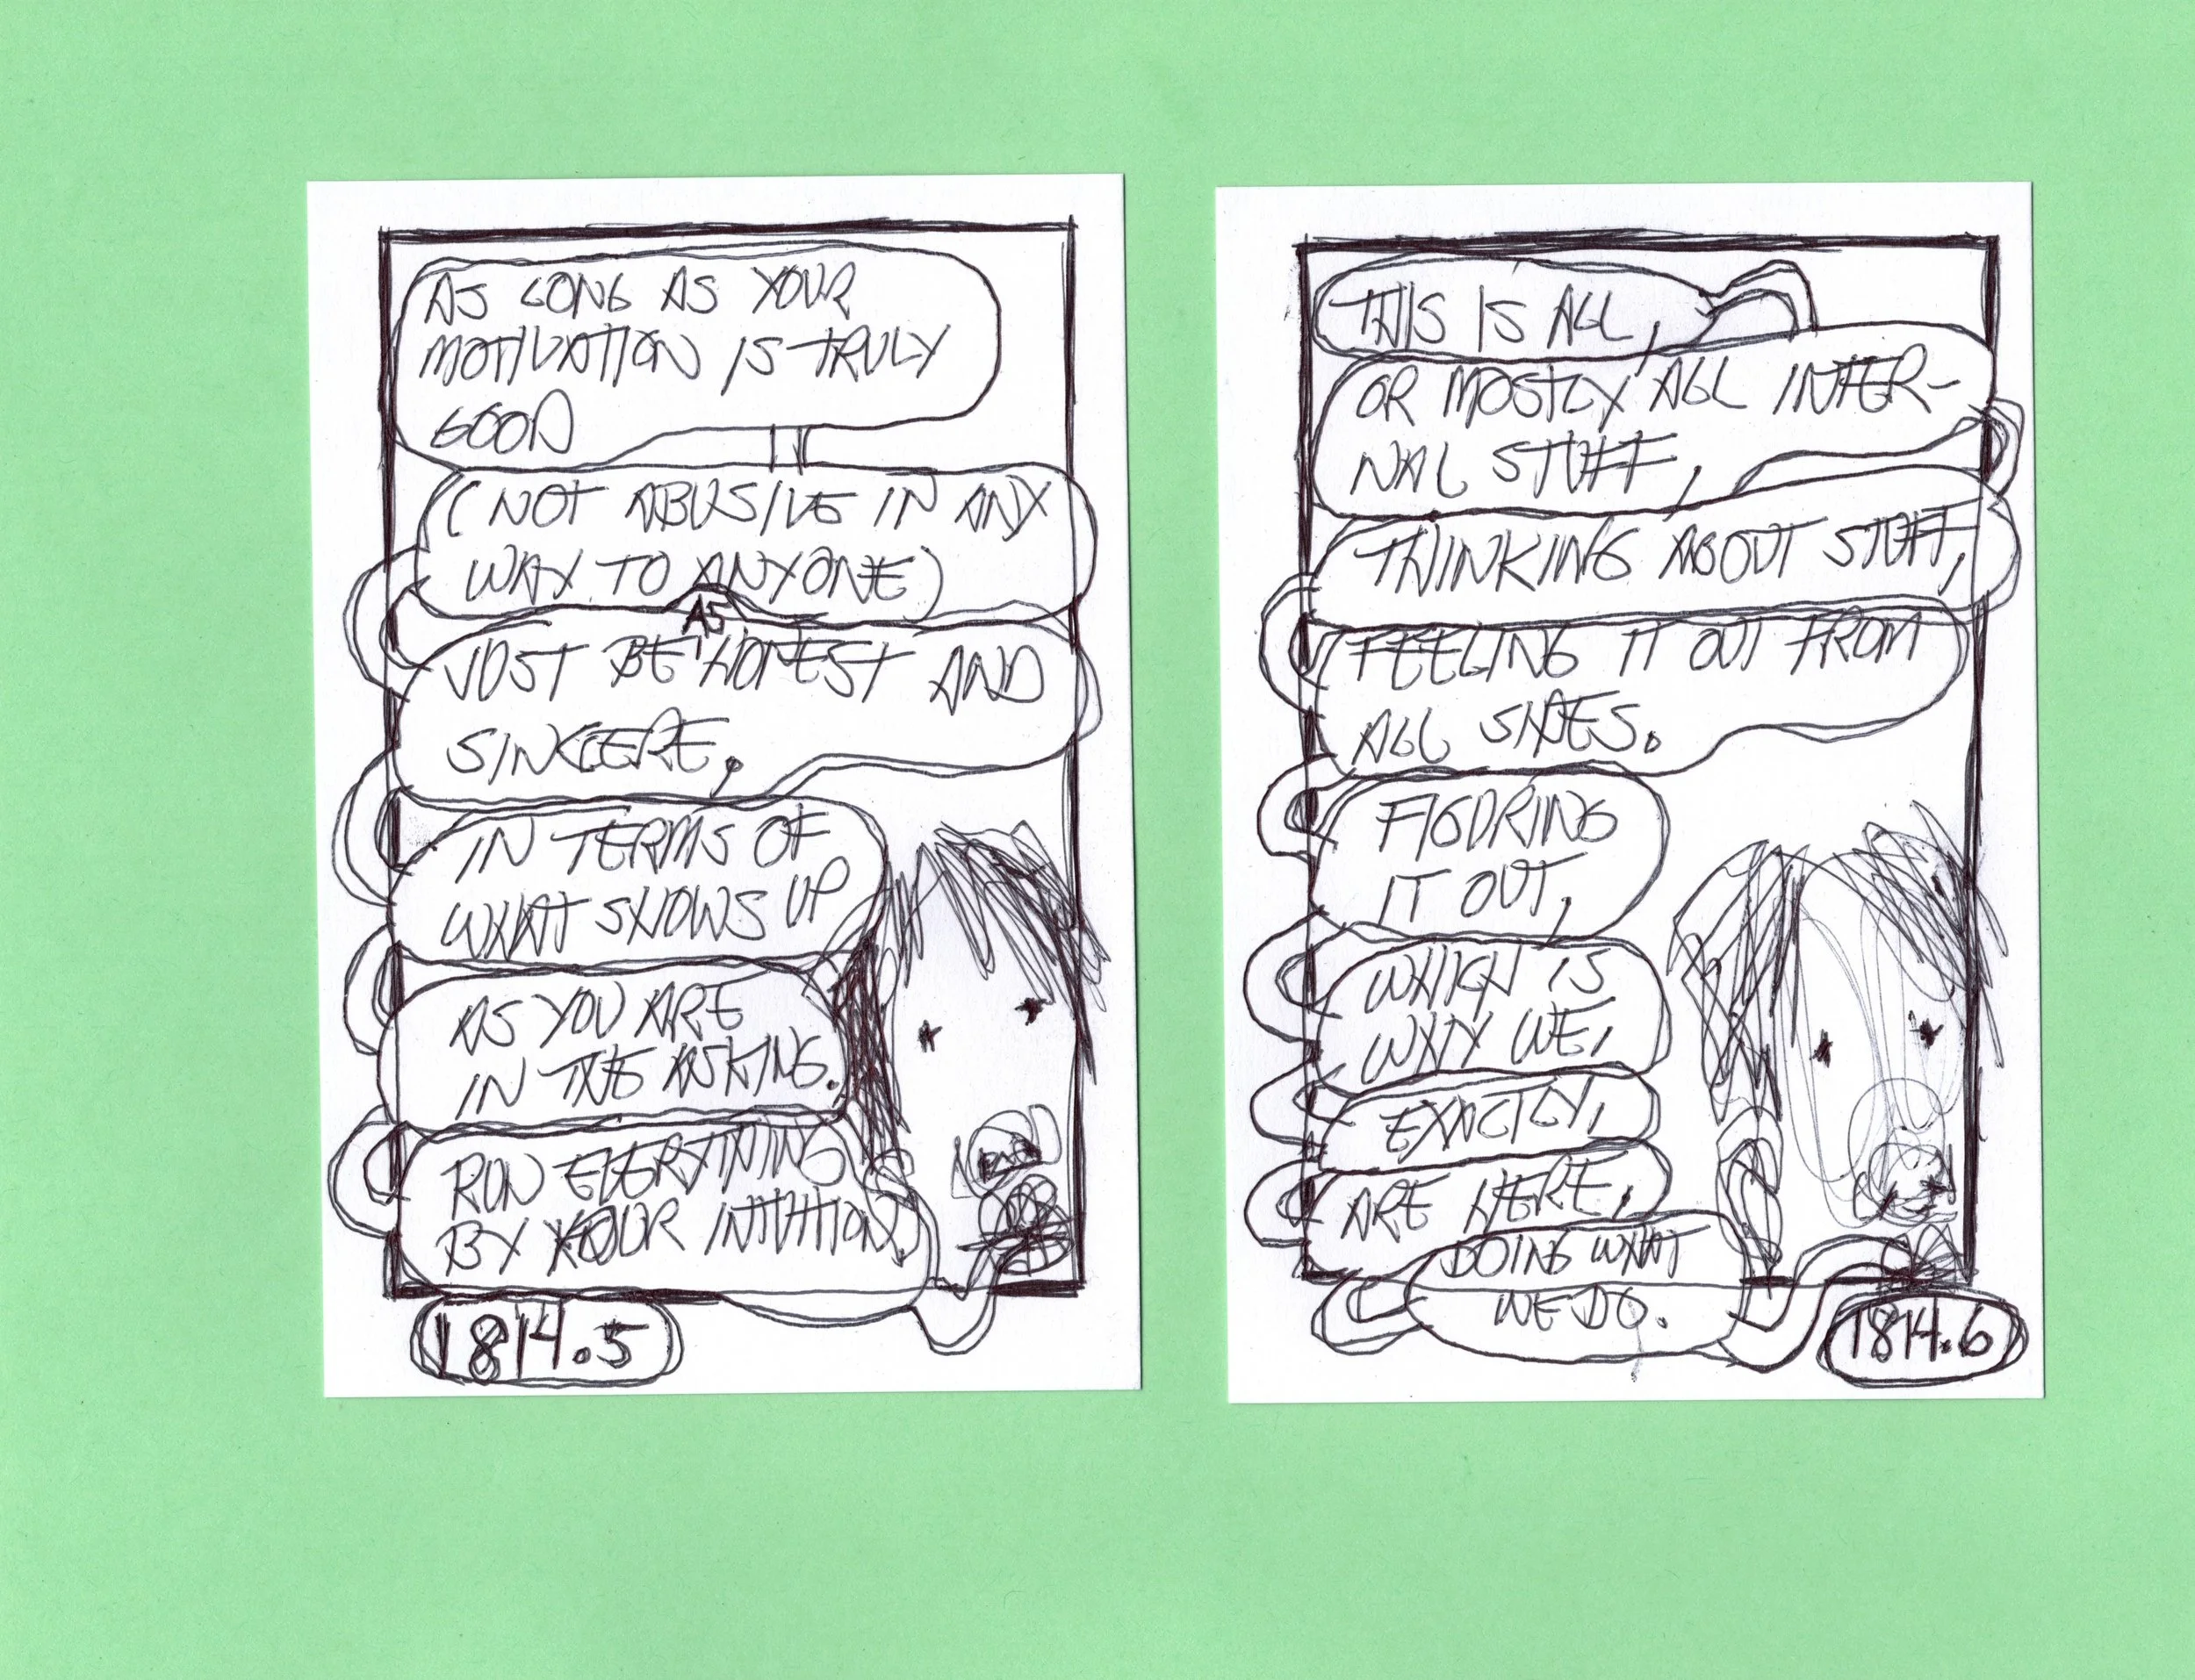 AS LONG AS YOUR
MOTIVATION IS TRULY
GOOD
(NOT ABUSIVE IN ANY
WAY TO ANYONE)
AS
JUST BE HONEST AND
SINCERE,
IN TERMS OF
WHAT SHOWS UP
AS YOU ARE
IN THE ASKING.
RUN EVERYTHING
BY YOUR INTUITION.
1814.5
THIS IS ALL,
OR MOSTLY ALL INTER-
NAL STUFF,
THINKING ABOUT STUFF,
FEELING IT OUT FROM
ALL SIDES.
FIGURING
IT OUT,
WHICH IS
WHY WE,
EXACTLY,
ARE HERE,
DOING WHAT
WE DO.
1814.6